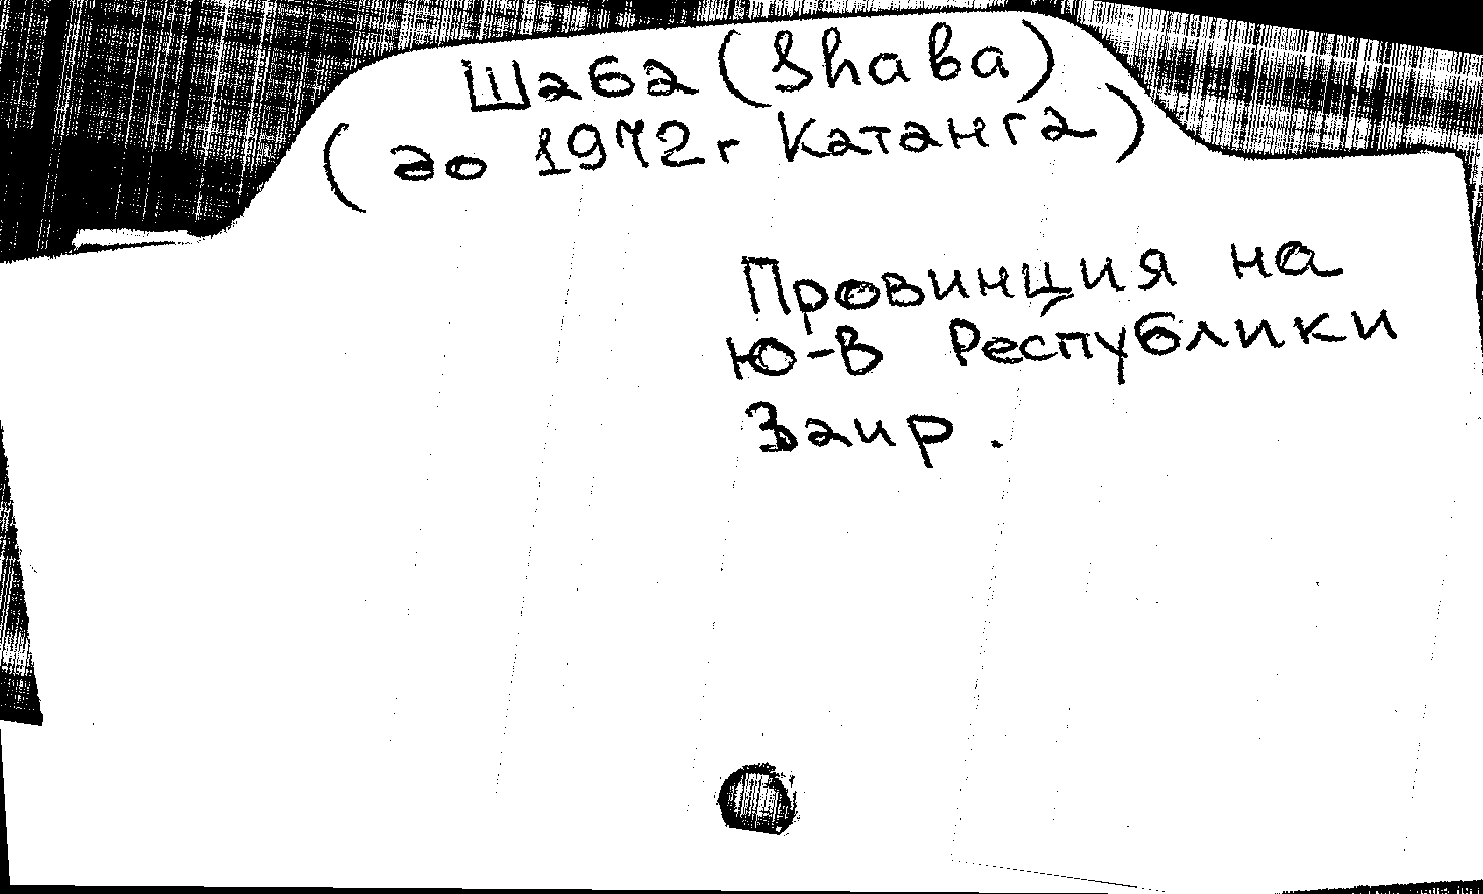 Шаба (Shaba)
(до 1972 г Катанга)
Провинция на
Ю-В Республики
Заир.